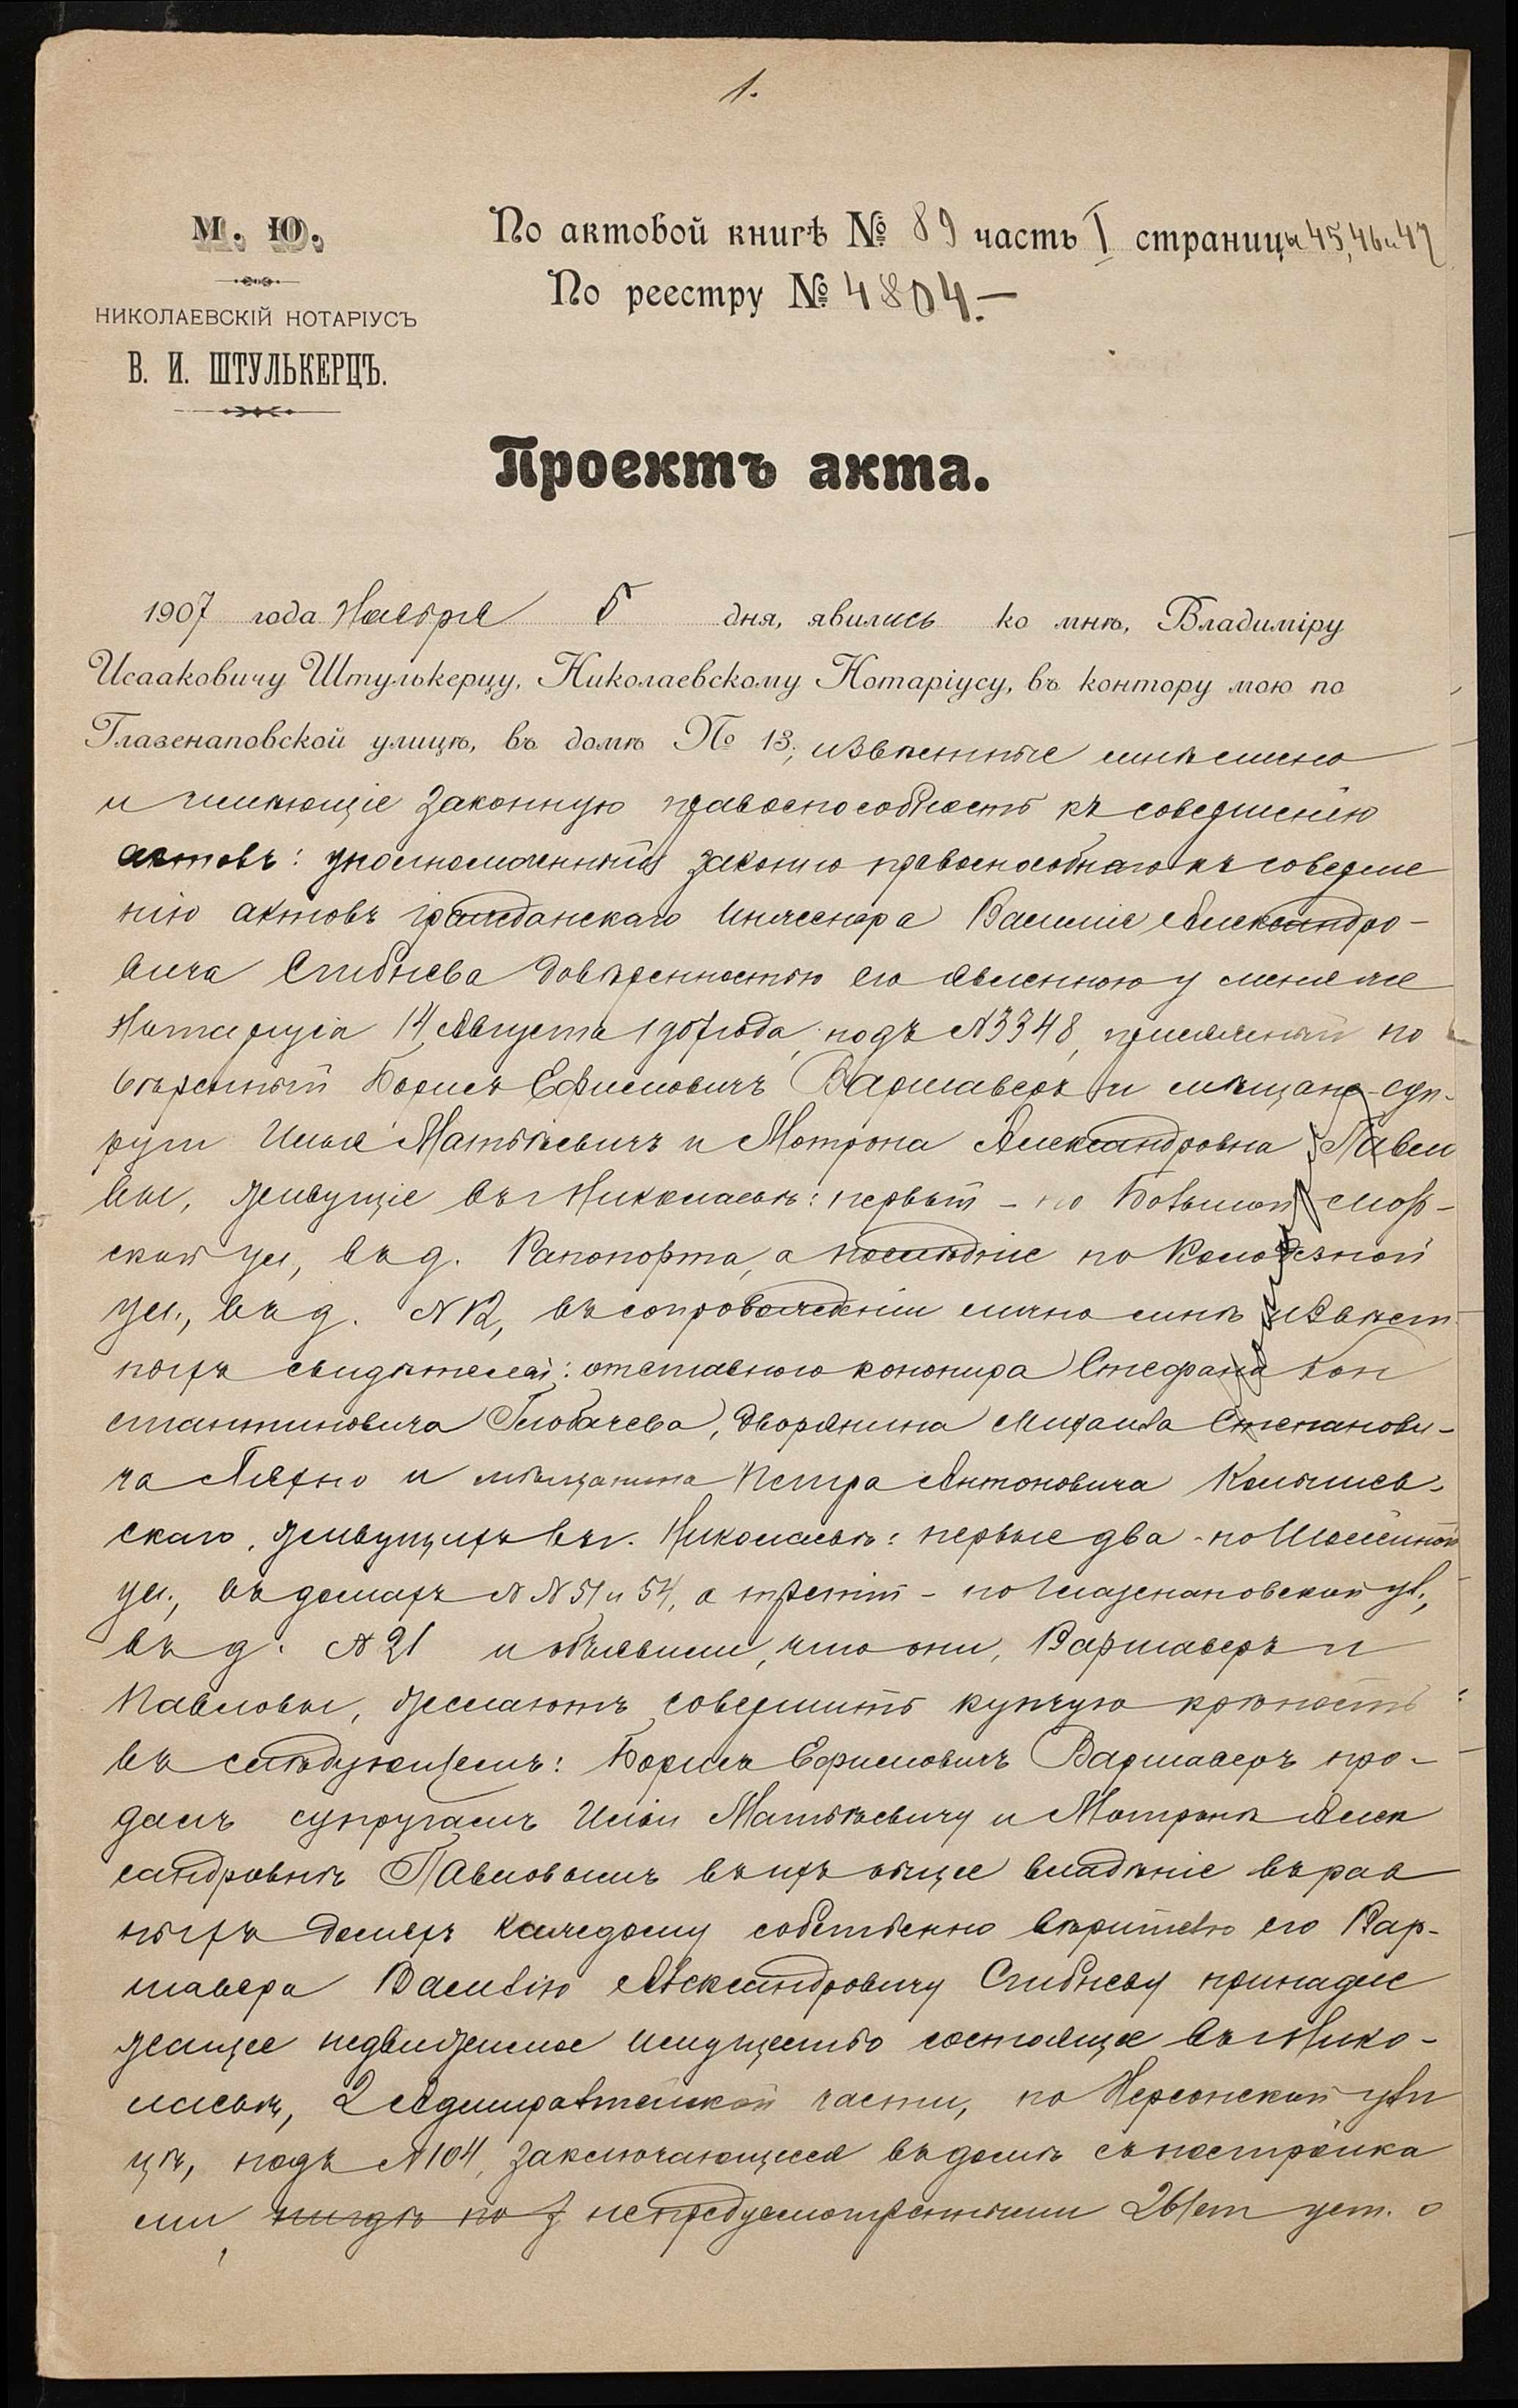 1.
М. Ю.
По актовой книгѣ № 89 часть I страницы 45, 46 и 47
По реестру № 4804.—
НИКОЛАЕВСКІЙ НОТАРІУСЪ
В. И. ШТУЛЬКЕРЦЪ.
Проектъ акта.
1907 года Ноября 5 дня, явились ко мнѣ, Владиміру
Исааковичу Штулькерцу, Николаевскому Нотаріусу, въ контору мою по
Глазенаповской улицѣ, въ домѣ № 13, извѣстные мнѣ лично
и имѣющіе законную правоспособность къ совершенію
актовъ: уполномоченный законно правоспособнаго къ соверше
нію актовъ гражданскаго инженера Василія Александро-
вича Сгибнева довѣренностью его явленною у меня же
Нотаріуса 14 Августа 1907 года, подъ № 3348, присяжный по
вѣренный Борисъ Ефимовичъ Варшаверъ и мѣщане суп-
руги Илья Матвѣевичъ и Мотрона Александровна Павло
вы, живущіе въ г. Николаевѣ: первый - по Большой Мор-
ской ул., въ д. Рапопорта, а послѣдніе по Колодезной
ул., въ д. № 12, въ сопровожденіи лично мнѣ извѣст
ныхъ свидѣтелей: отставного канонира Стефана Кон
стантиновича Глобачева, дворянина Михаила Степанови-
ча Ляхно и мѣщанина Петра Антоновича
скаго, живущихъ въ г. Николаевѣ: первые два - по
ул., въ домахъ № № 51 и 54, а третій - по Глазенаповской ул.,
въ д. № 21 и объявили, что они, Варшаверъ и
Павловы, желаютъ совершить купчую крѣпость
въ слѣдующемъ: Борисъ Ефимовичъ Варшаверъ про-
далъ супругамъ Ильи Матвѣевичу и Мотронѣ Алек
сандровнѣ Павловымъ въ ихъ общее владѣніе въ рав
ныхъ доляхъ каждому собственно вѣрителю его Вар-
шавера Василію Александровичу Сгибневу принадле
жащее недвижимое имущество состоящее въ г. Нико-
лаевѣ, 2 Адмиралтейской части, по Херсонской ули
цѣ, подъ № 104, заключающееся въ домѣ съ постройка
ми не предусмотренными 261 ст уст. о